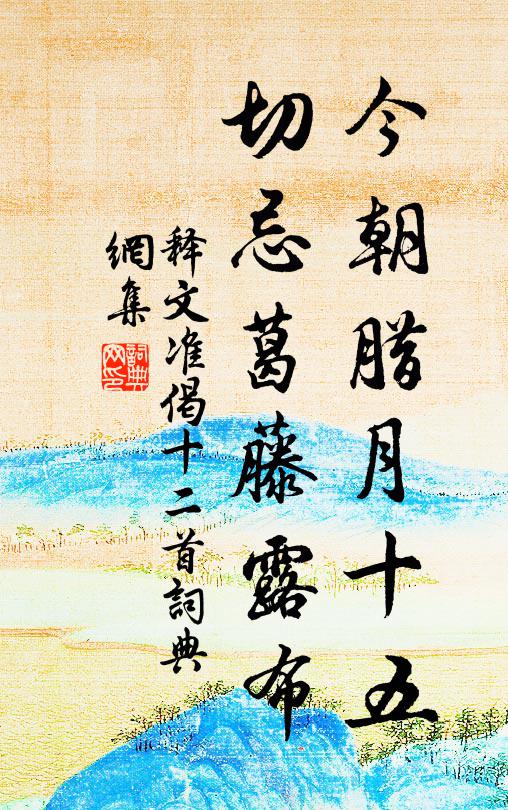 今朝腊月十五
切忌葛藤露布
释文准偈十二首詞典
網集
詞典
网印